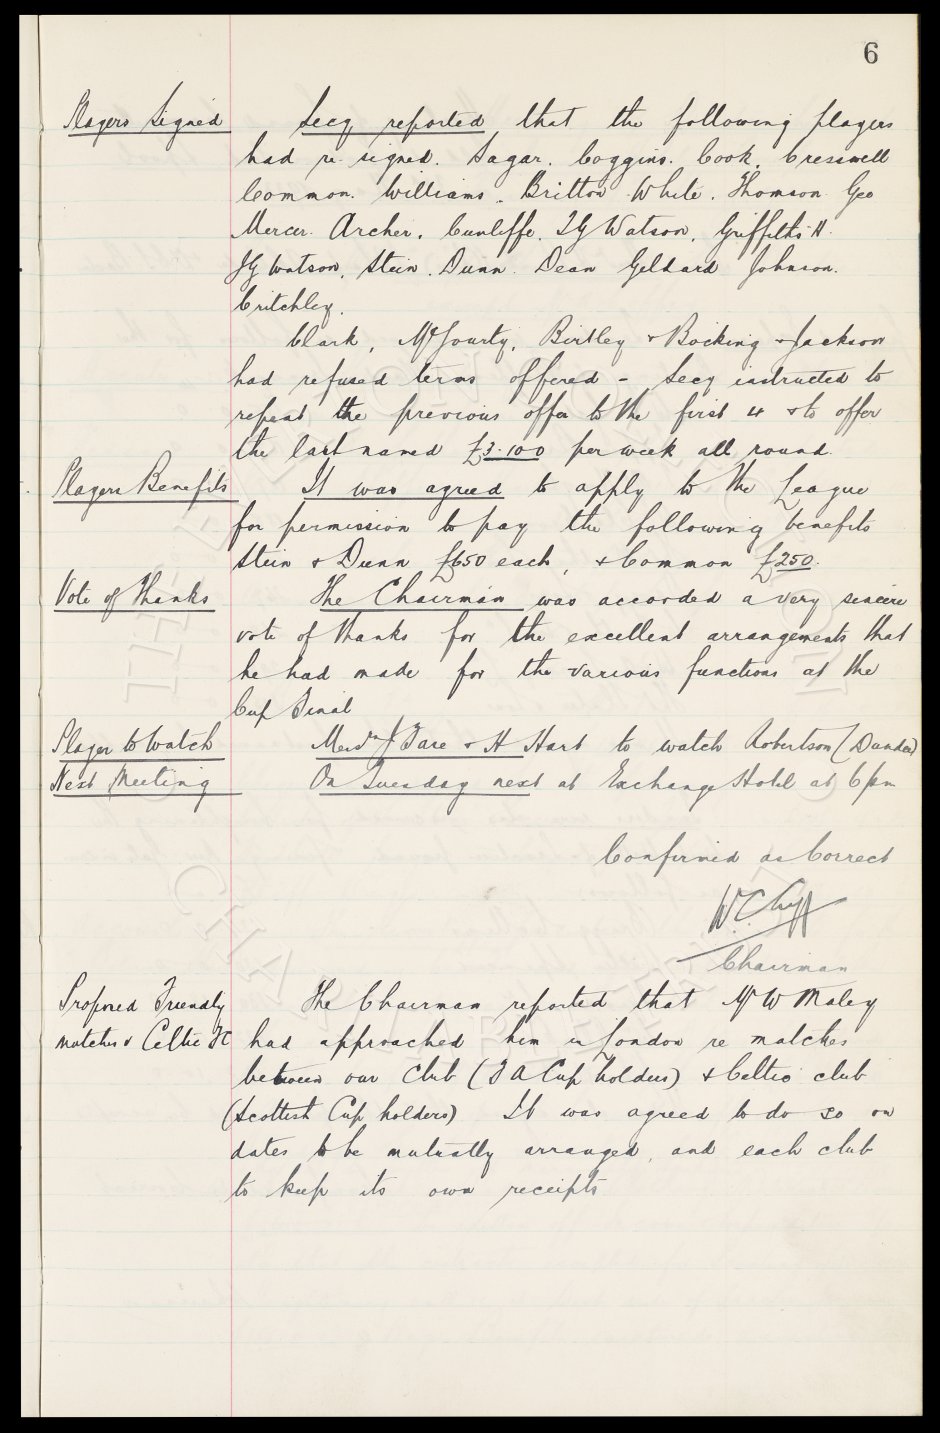 6
Players Signed
Secy reported that the following players
had re-signed. Sagar. Coggins. Cook. Cresswell
Common. Williams. Britton. White. Thomson. Geo
Mercer. Archer. Cunliffe. T G Watson. Griffiths H.
J G Watson. Stein. Dunn. Dean Geldard Johnson.
Critchley.
Clark, McGourty, Birtley + Bocking + Jackson
had refused terms offered - Secy instructed to
repeat the previous offer to the first 4 & to offer
the last named £3.10.0 per week all round.
Players Benefits
It was agreed to apply to the League
for permission to pay the following benefits
Stein & Dunn £650 each, & Common £250.
Vote of Thanks
The Chairman was accorded a very sincere
vote of thanks for the excellent arrangements that
he had made for the various functions at the
Cup Final
Player to Watch
Fare & H Hart to watch Robertson (Dundee)
Next Meeting
On Tuesday next at Exchange Hotel at 6 pm
Confirmed as Correct
W. C. Cuff
Chairman
Proposed Friendly
matches v Celtic FC
The Chairman reported that Mr W Maley
had approached him in London re matches
between our Club (F A Cup holders) & Celtic club
(Scottish Cup holders) It was agreed to do so on
dates to be mutually arranged, and each club
to keep its own receipts